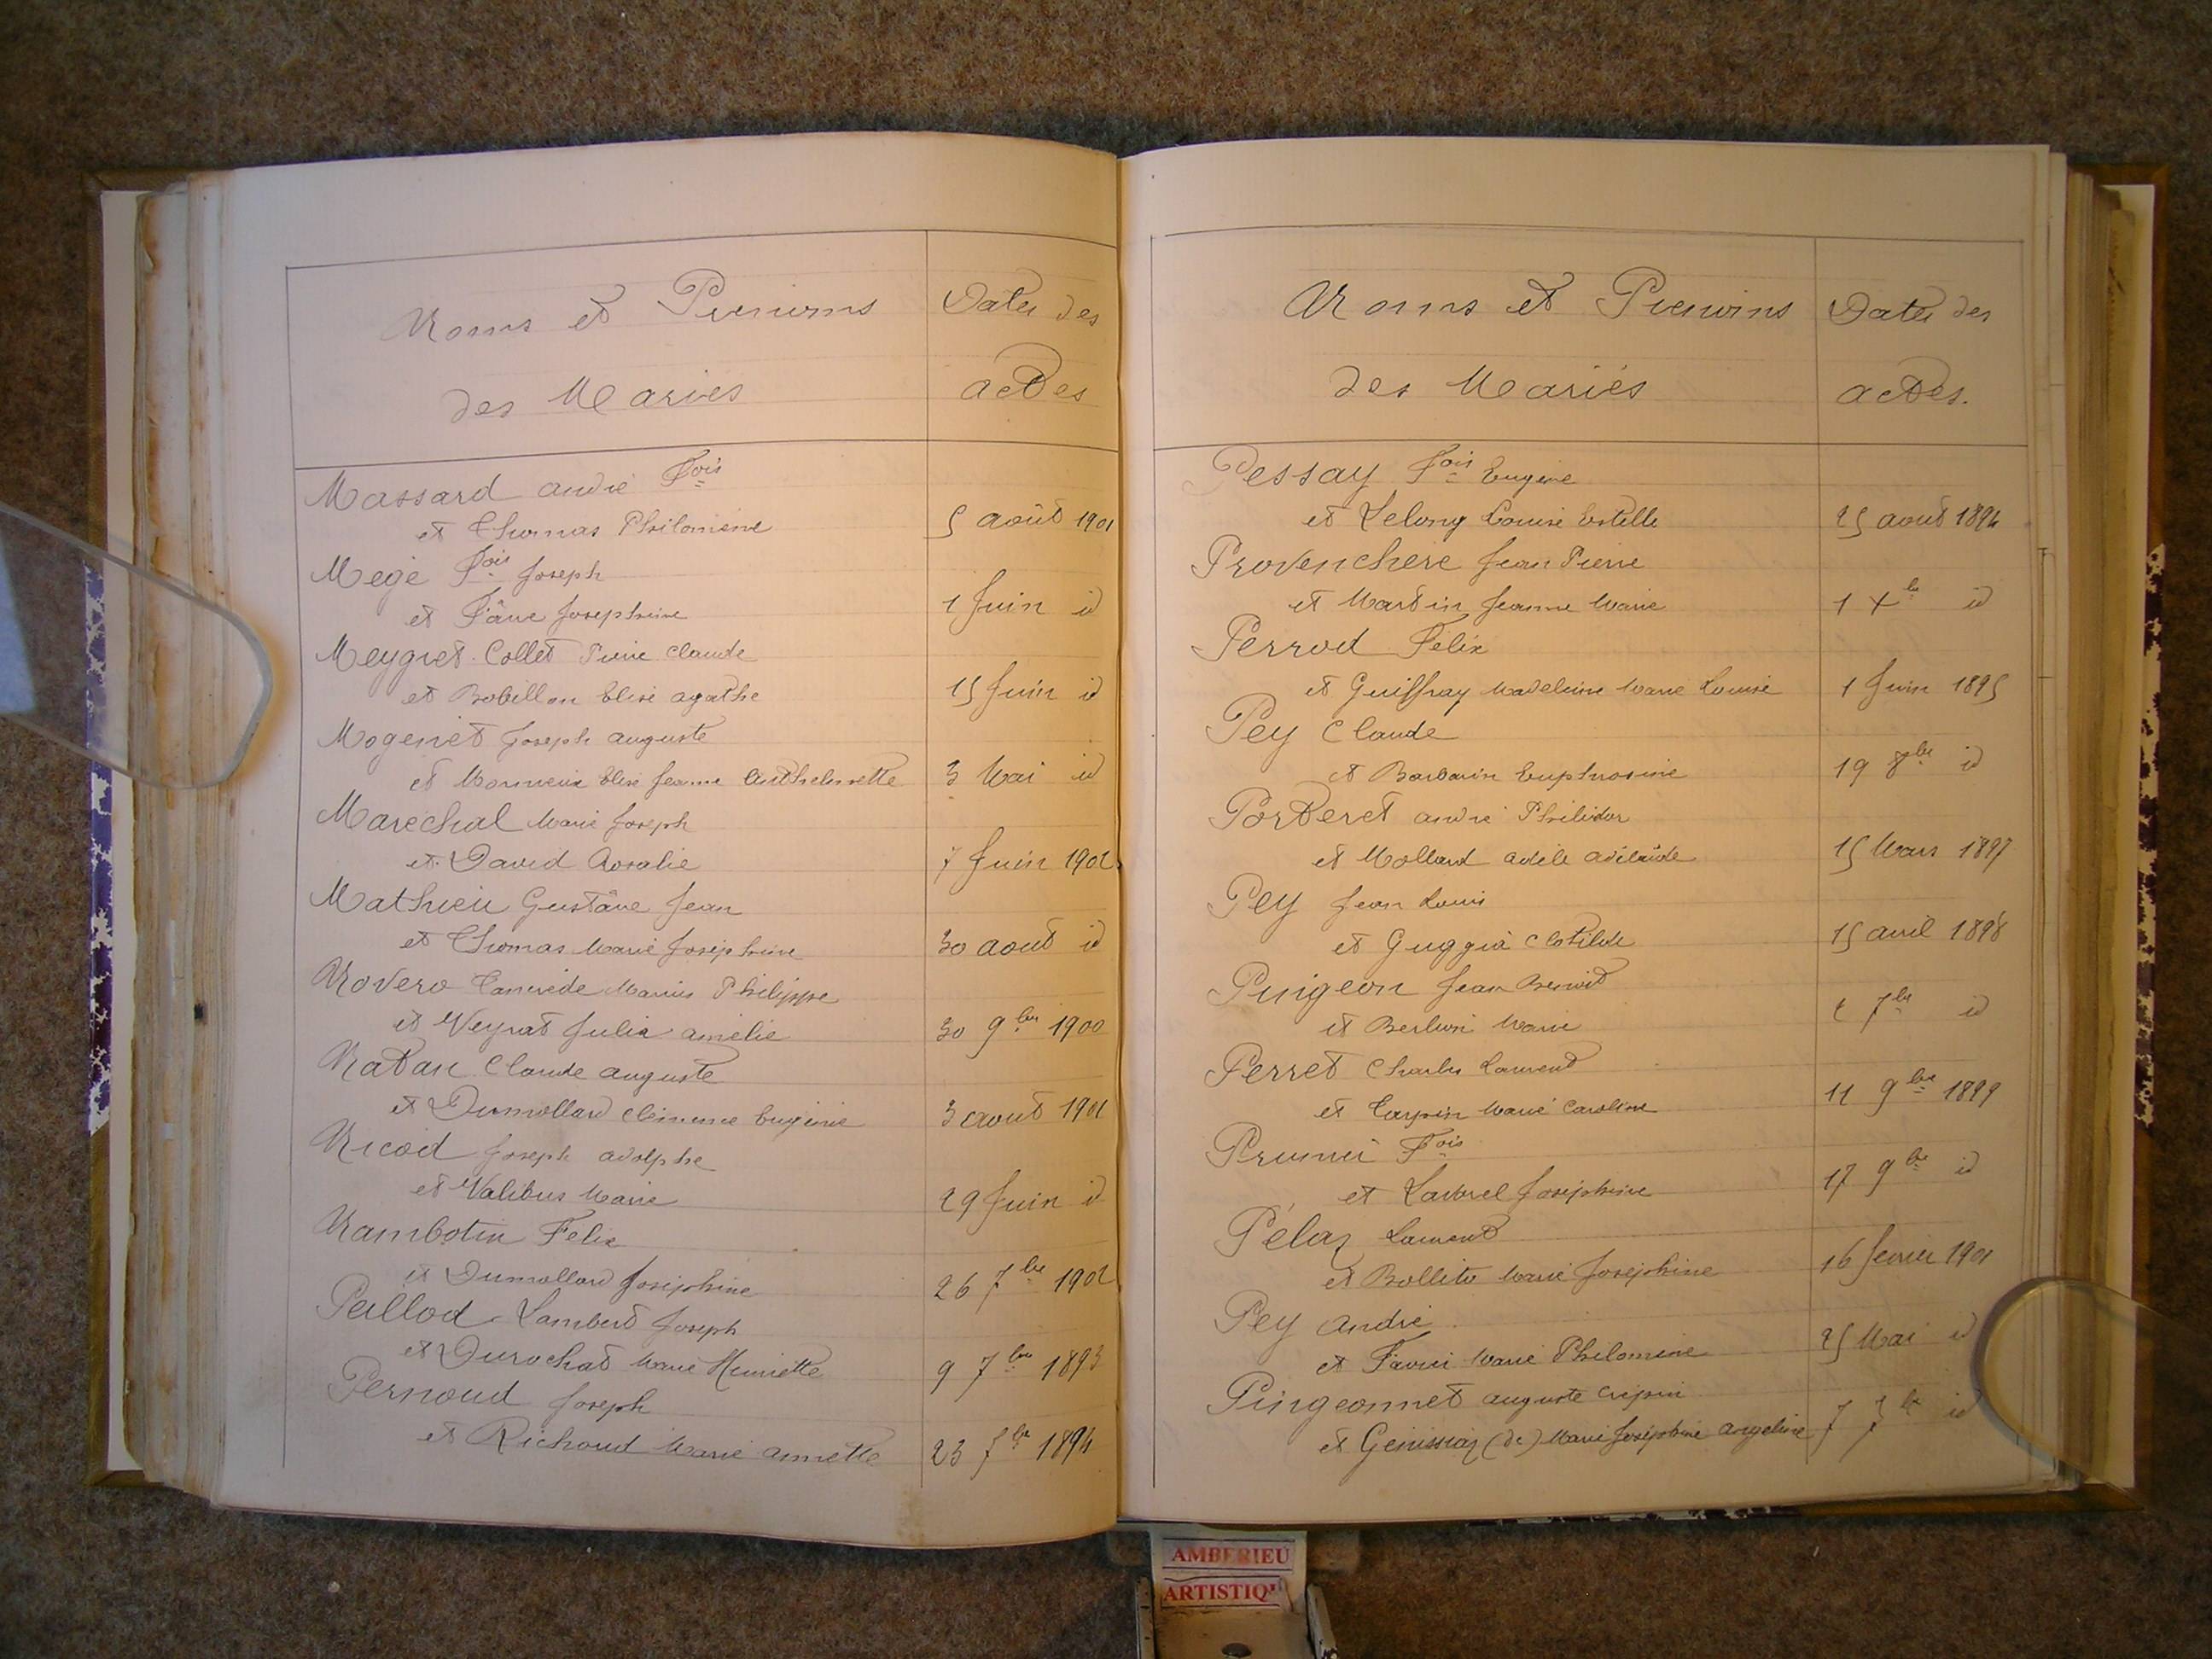 Noms et Prénoms
Dates des
des Mariés
actes
Massard André Fois
et Thomas Philomène
5 août 1901
Mégé Fois Joseph
et Fâvre Joséphine
1 Juin id
Meygret-Collet Pierre Claude
et Bobillon Elise Agathe
15 Juin id
Mogeniet Joseph Auguste
et Elise Jeanne Anthelmette
3 Mai id
Maréchal Marie Joseph
et David Rosalie
7 Juin 1902
Mathieu Gustâve Jean
et Thomas Marie Joséphine
30 août id
Novero Tancrède Marius Philippe
et Veyrat Julia Amélie
30 9bre 1900
Natan Claude Auguste
et Dumollard Clémence Eugénie
3 août 1901
Nicod Joseph Adolphe
et Valibus Marie
29 Juin id
Nambotin Félix
et Dumollard Joséphine
26 7bre 1902
Peillod Lambert Joseph
et Durochat Marie Henriette
9 7bre 1893
Pernoud Joseph
et Richoud Marie Annette
23 7bre 1894
Noms et Prénoms
Dates des
des Mariés
actes.
Pessay Fois Eugène
et Lelong Louise Estelle
25 août 1894
Provenchère Jean Pierre
et Martin Jeanne Marie
1 Xbre id
Perrod Félix
et Guiffray Madeleine Marie Louise
1 Juin 1895
Pey Claude
et Barbarin Euphrosine
19 8bre id
Porteret André Philidor
et Mollard Adèle Adélaïde
15 Mars 1897
Pey Jean Louis
et Guggia Clotilde
15 avril 1898
Pingeon Jean Benoit
et Berlion Marie
7bre id
Perret Charles Laurent
et Carpin Marie Caroline
11 9bre 1899
Prumei Fois
et Joséphine
17 9bre id
Pélaz Laurent
et Bolliet Marie Joséphine
16 février 1901
Pey André
et Favier Marie Philomène
25 Mai id
Pingeonnet Auguste Crépin
et Génissiaz (de) Marie Joséphine Angeline
7 7bre id
AMBERIEU
ARTISTIQU